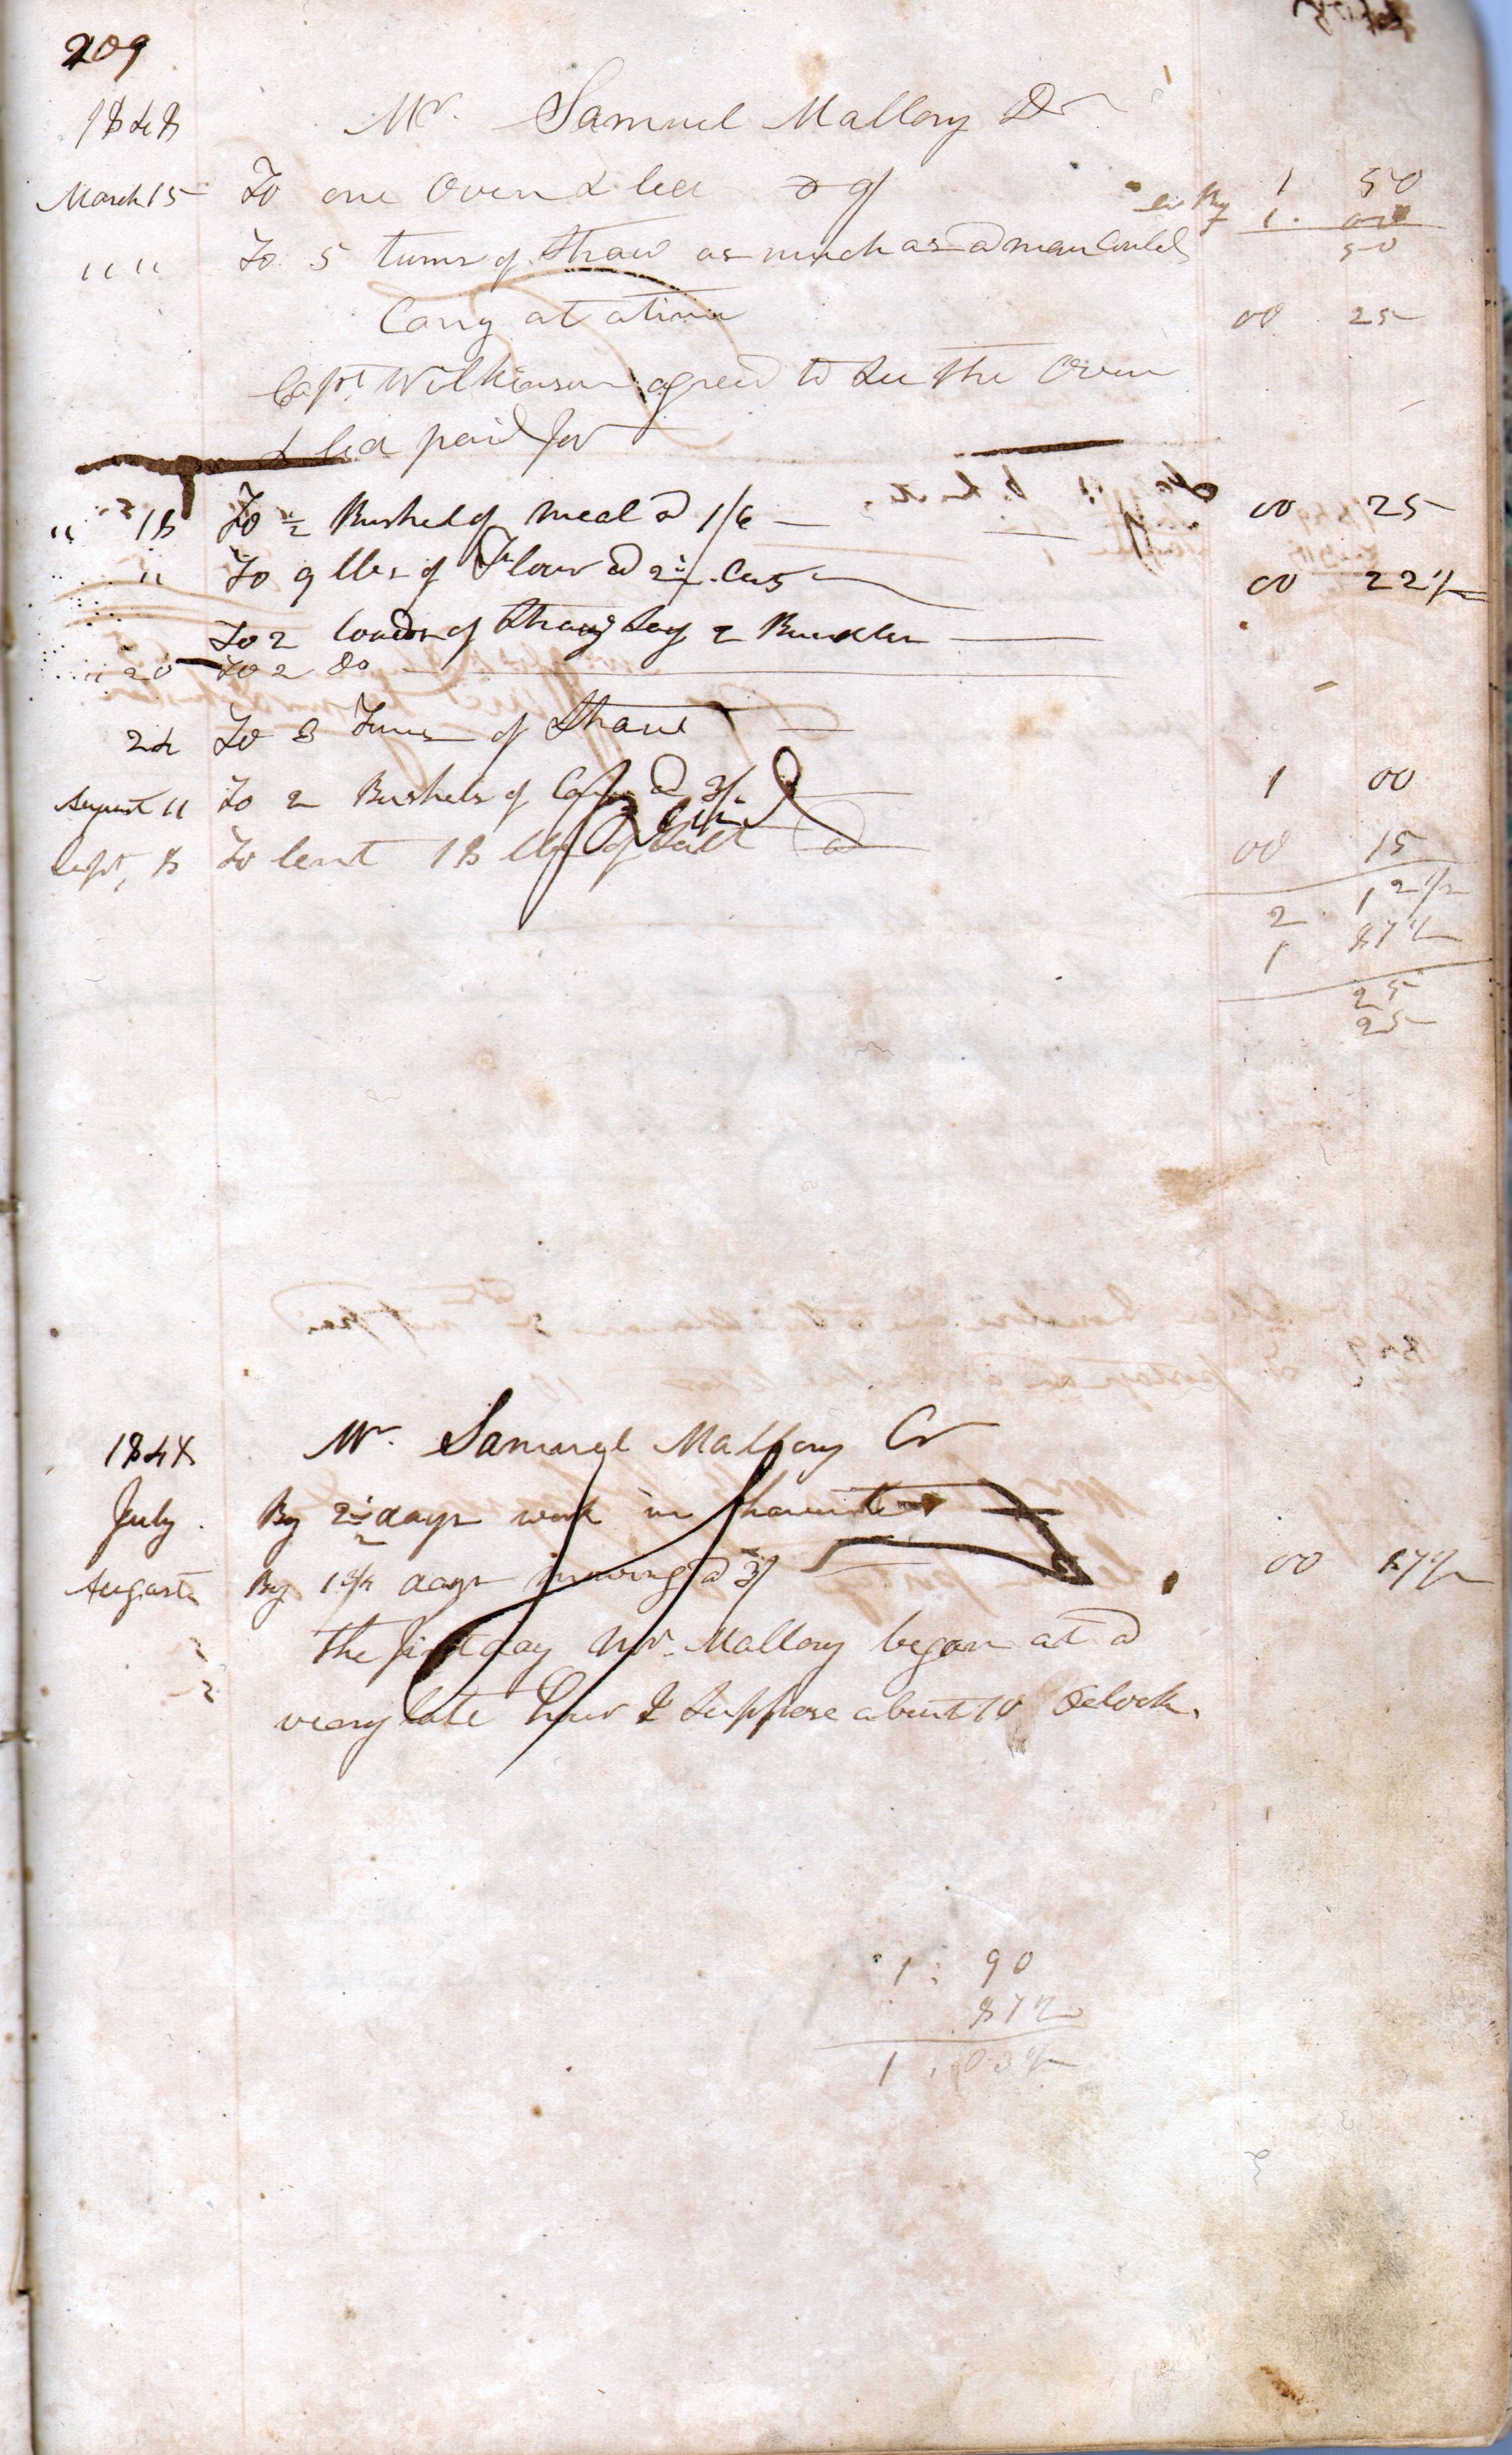 209
1848 Mr. Samuel Mallory Dr
March 15 To one Oven & lead @ 9/ 1 50
By 1. 00
" " To 5 turns of Straw as much as a man Could 50
Carry at a time 00 25
Capt Wilkinson agreed to See the Oven
& lead paid for
" 18 To ½ Bushel of Meal @ 1/6 00 25
" To 9 lbs of Flour @ 2½ Cents 00 22½
To 2 loads of Straw Say 2 Bundles
" 20 To 2 do
24 To 3 Turns of Straw
August 11 To 2 Bushels of Corn @ 3/ 1 00
Sept, 8 To lent 18 lbs of Salt 00 15
2 12½
1 87½
25
25
1848 Mr. Samuel Mallory Cr
July By 2½ days work in harvest
August By 1¾ days mowing @ 3/ 00 87½
The first day Mr. Mallory began at a
very late hour I Suppose about 10 Oclock.
1 : 90
87½
1 . 03½